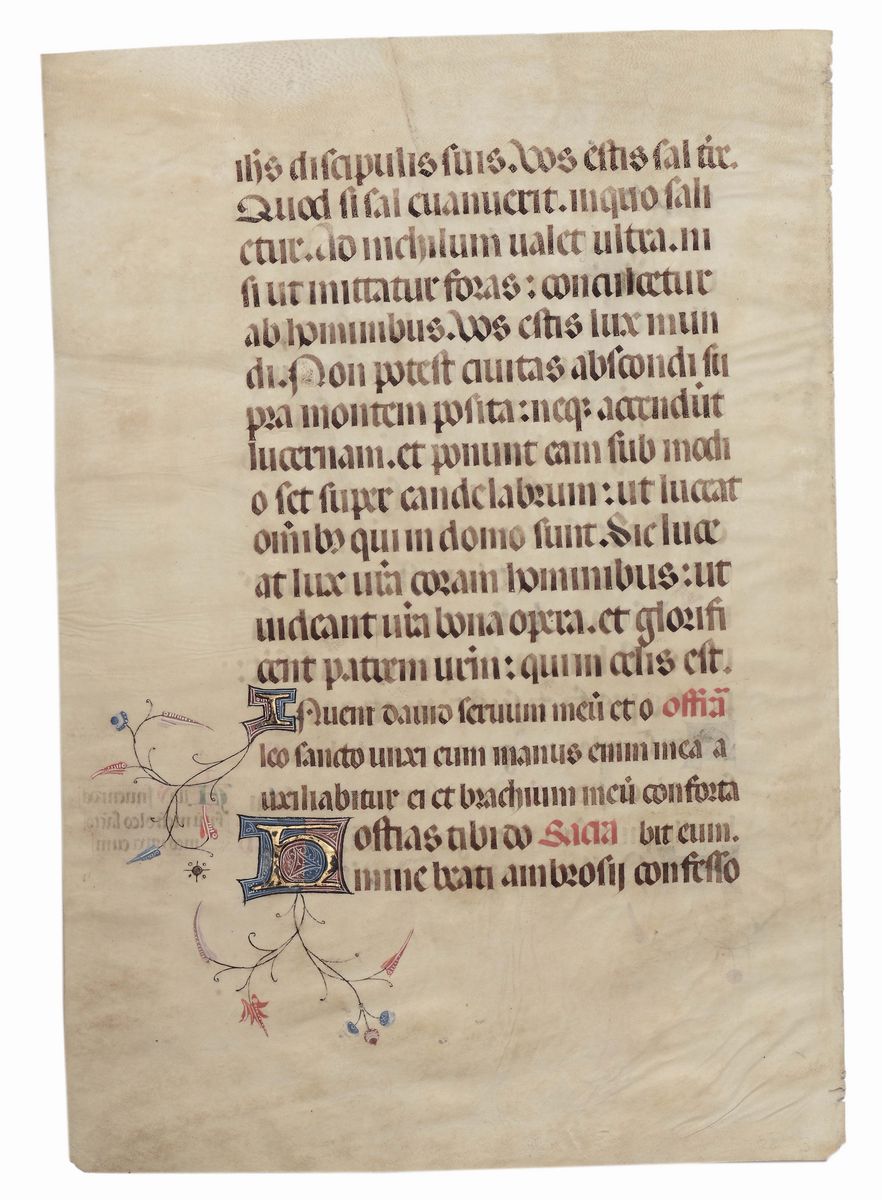 ihs discipulis suis. Vos estis sal tre.
Quod si sal euanuerit. in quo sali
etur. Ad nichilum ualet ultra. ni
si ut mittatur foras: conculcetur
ab hominibus. Vos estis lux mun
di. Non potest ciuitas abscondi su
pra montem posita: neqꝫ accendūt
lucernam. et ponunt eam sub modi
o set super candelabrum: ut luceat
om̄ibꝫ qui in domo sunt. Sic luce
at lux ur̄a coram hominibus: ut
uideant ur̄a bona opera. et glorifi
cent patrem urm̄: qui in celis est.
INueni dauid seruum meū et o offr̄a
leo sancto unxi eum manus enim mea a
uxiliabitur ei et brachium meū conforta
Hostias tibi do Sacra bit eum.
mine beati ambrosij confesso